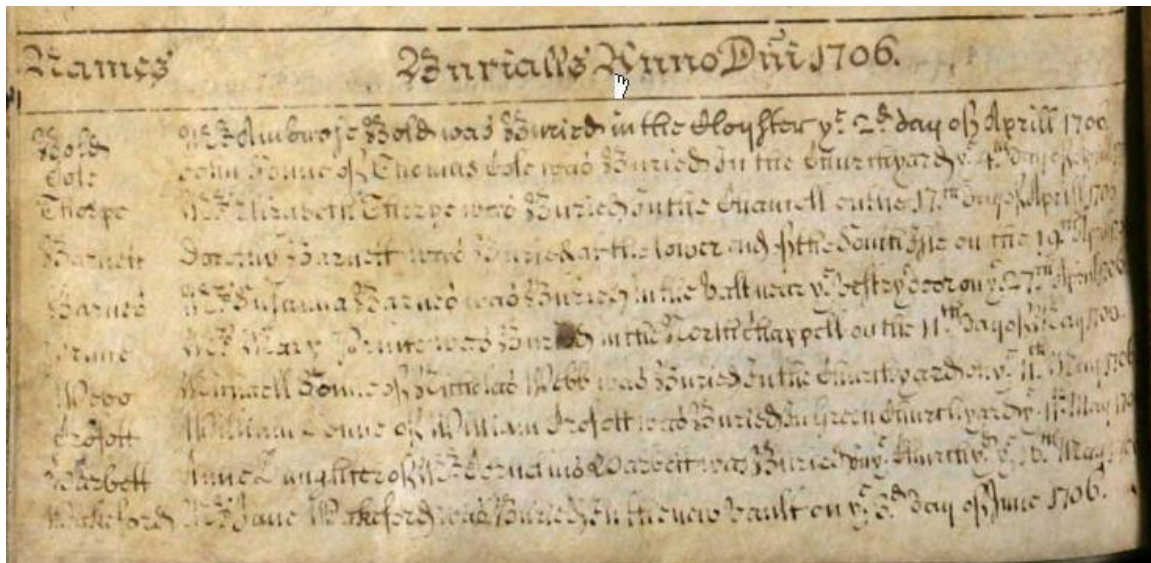 Names Burialls Anno Dni 1706.
Bold Mr. Ambrose Bold was Buried in the Cloyster ye. 2d. day of Aprill 1706
Cole John Sonne of Thomas Cole was Buried in the Churchyard ye. 4th. day of
Thorpe Elizabeth Thorpe was Buried in the Chancell on the 17th. Day of Aprill 1706
Barnett Dorothy Barnett was Buried at the lower end of the South Isle on the 19th. Aprill
Barnes Susanna Barnes was Buried in the Valt near ye. Vestry door on ye. 27th. Aprill 1706
Prune Mary Prune was Buried in the North Chappell on the 11th. Day of May 1706.
Webb Michaell Sonne of Nicholas Webb was Buried in the Churchyard on ye. 11th. May 1706
William Sonne of William was Buried in Green Churchyard ye. May
Anne Daughter of Mr. Cornelius was Buried in ye. Churchyd. ye. May
Wakeford Jane Wakeford was Buried in the new Vault on ye. Day of June 1706.